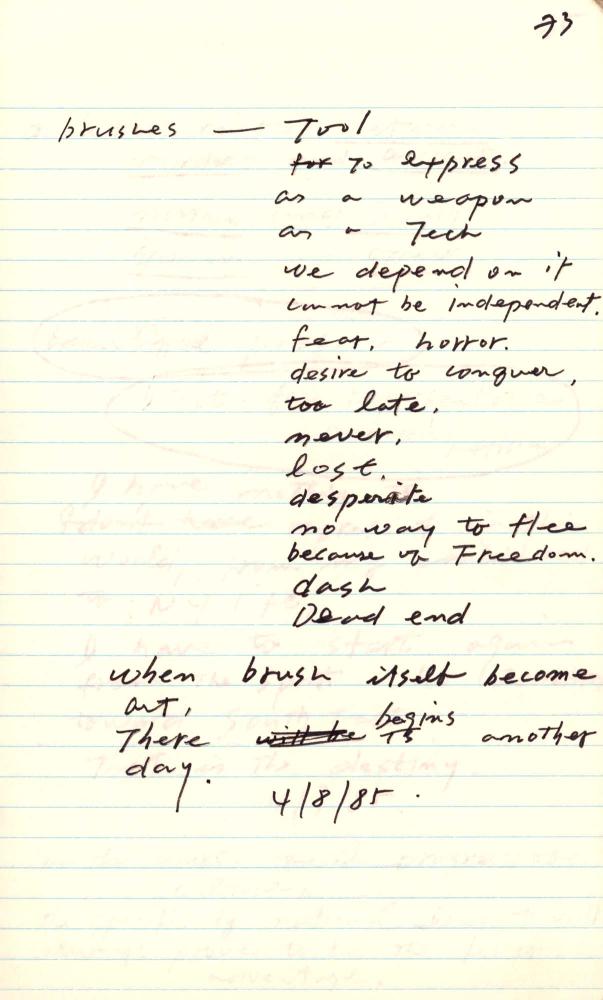 73
brushes — Tool
for To express
as a weapon
as a Tech
we depend on it
cannot be independent.
fear, horror.
desire to conquer,
too late,
never,
lost,
desperate
no way to flee
because of Freedom.
dash
Dead end
when brush itself become
art,
begins
There will be is another
day.
4/8/85.